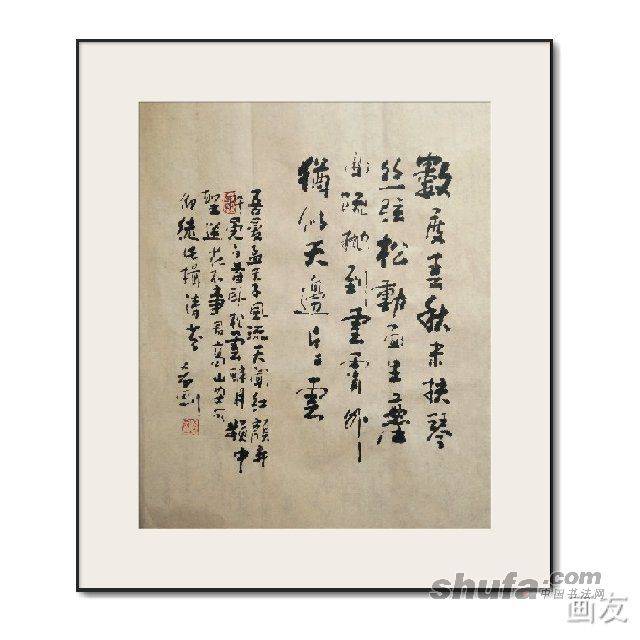 數度春秋未扶琴
絲弦松動面生塵
疏拋到雲霄外
猶似天邊片片雲
吾愛孟夫子風流天下聞紅顏弃
軒冕白首卧松雲醉月頻中
聖迷花不事君高山安可
仰徒此揖清芬
shufa.com
中国书法网
画友